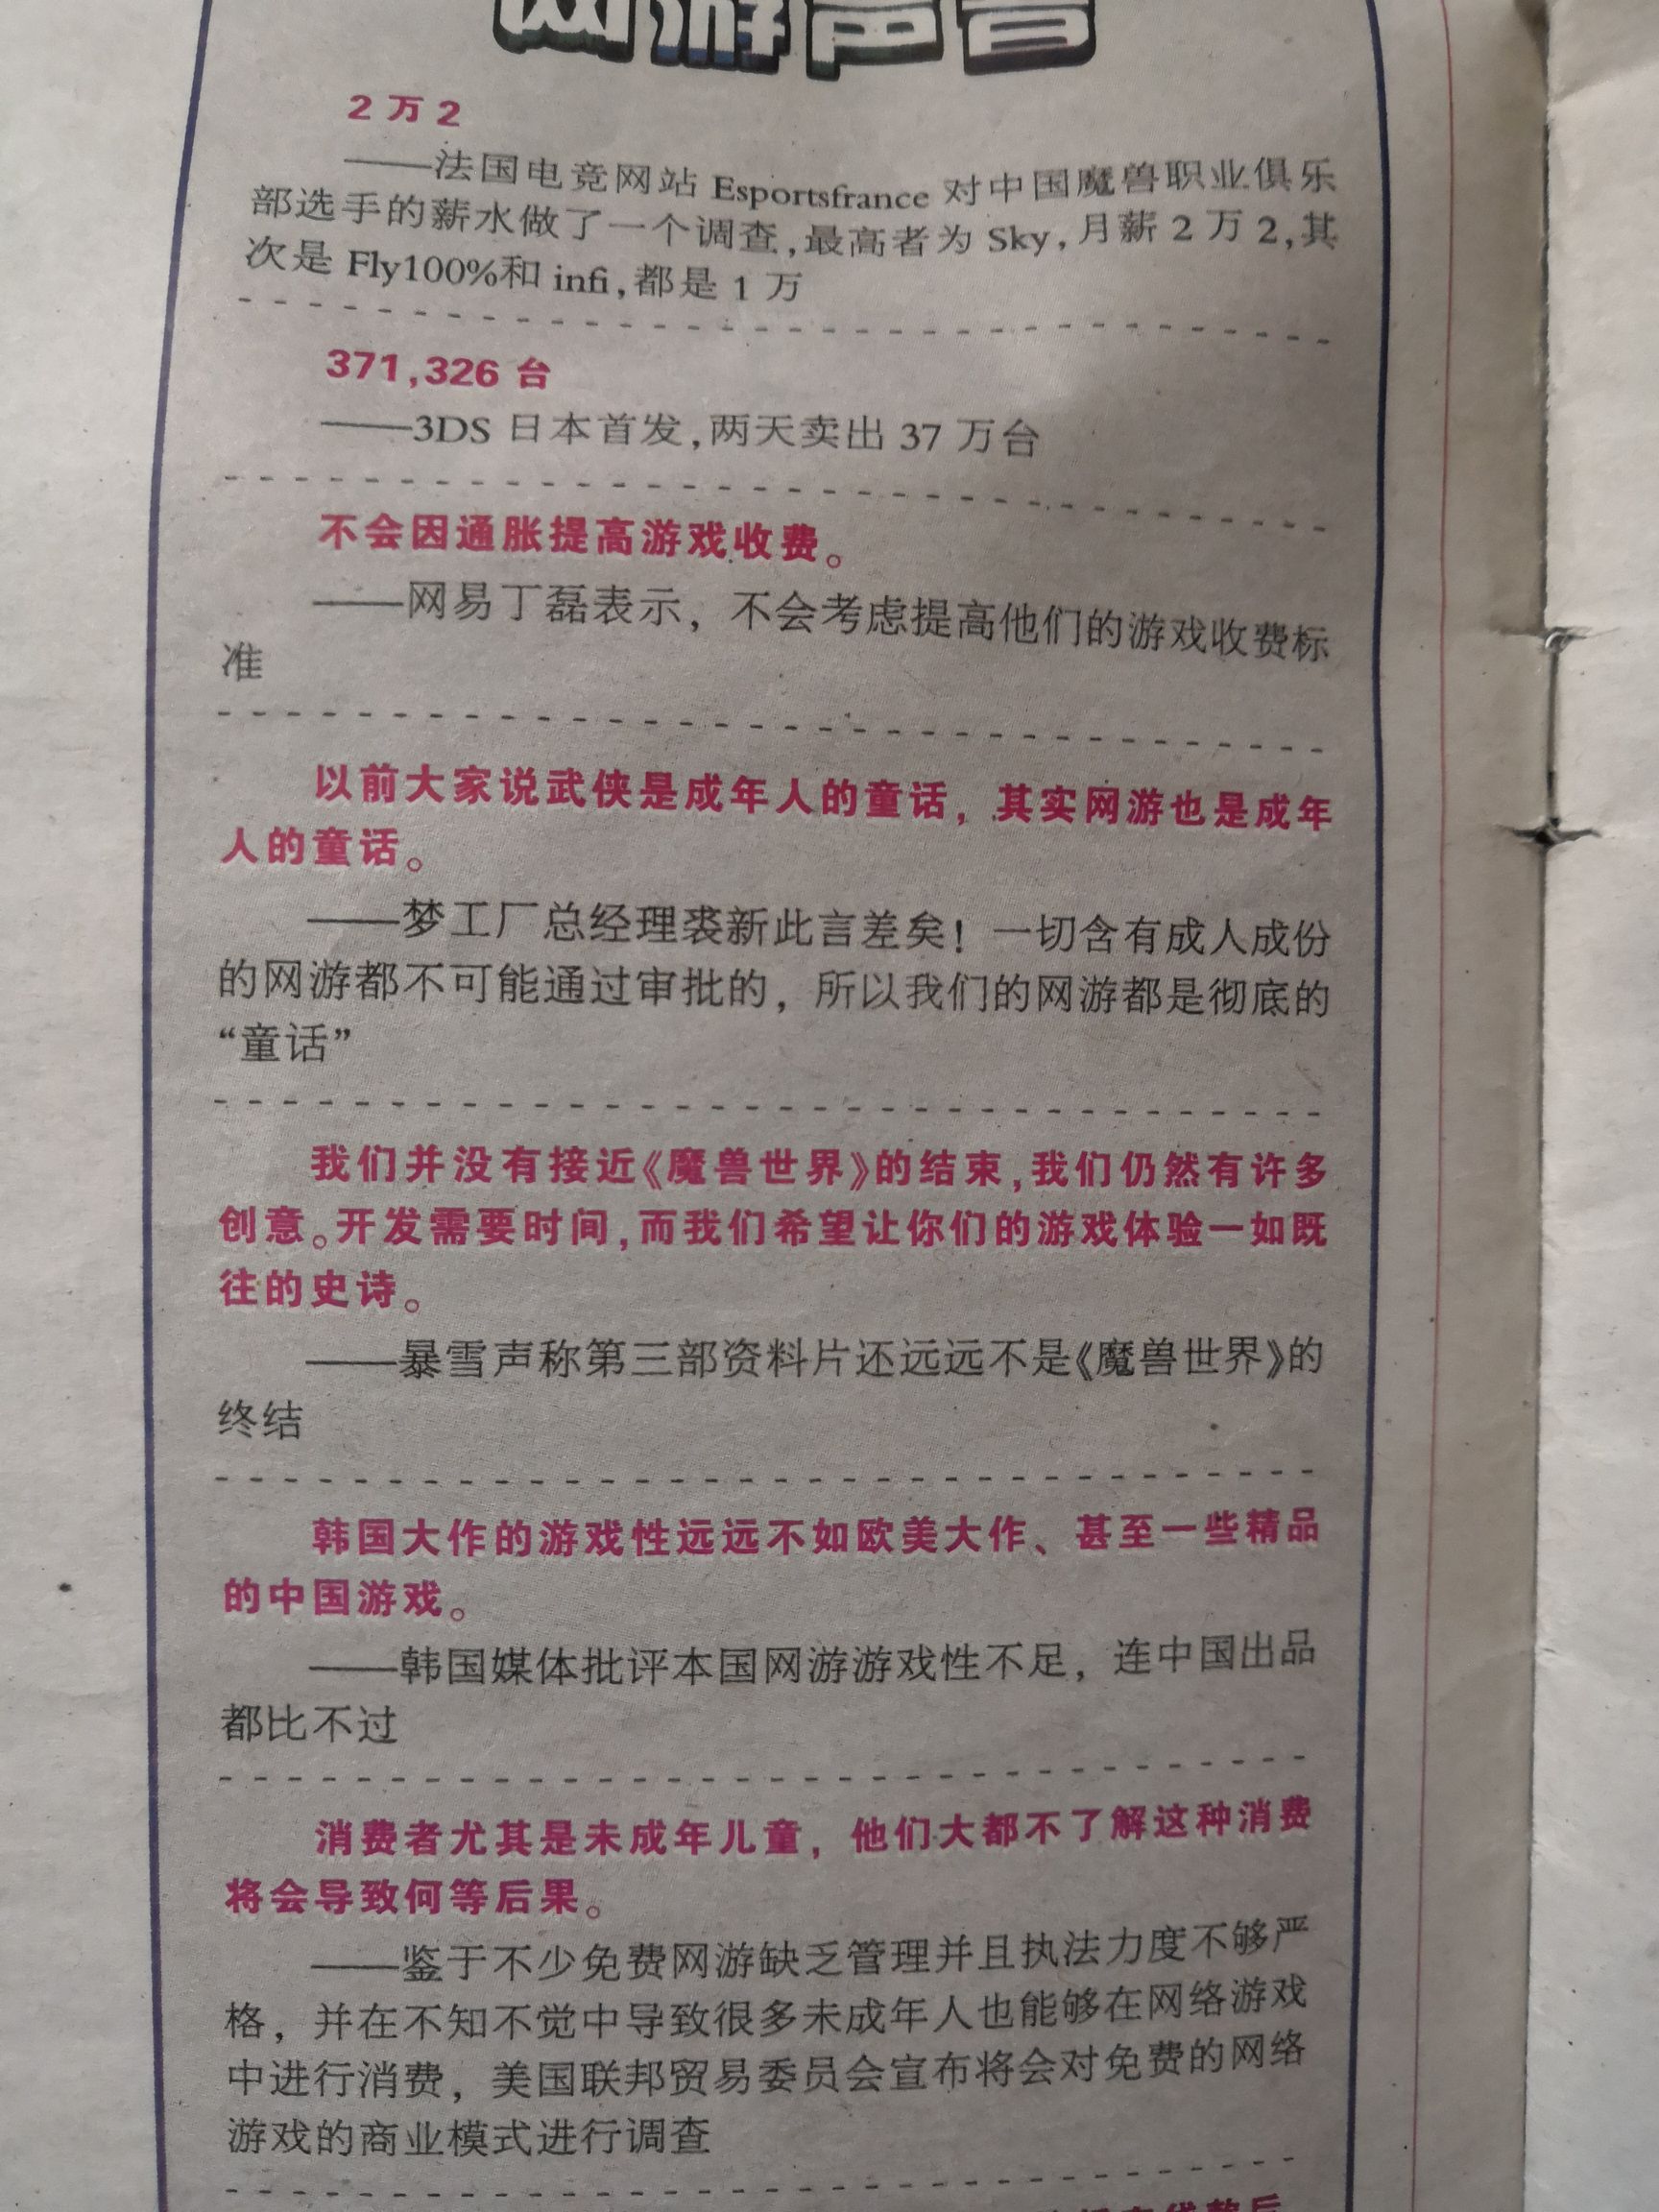 网游声音
2万2
——法国电竞网站 Esportsfrance 对中国魔兽职业俱乐
部选手的薪水做了一个调查,最高者为 Sky,月薪 2 万 2,其
次是 Fly100%和 infi,都是 1 万
371,326 台
——3DS 日本首发,两天卖出 37 万台
不会因通胀提高游戏收费。
——网易丁磊表示，不会考虑提高他们的游戏收费标
准
以前大家说武侠是成年人的童话，其实网游也是成年
人的童话。
——梦工厂总经理裘新此言差矣！一切含有成人成份
的网游都不可能通过审批的，所以我们的网游都是彻底的
“童话”
我们并没有接近《魔兽世界》的结束,我们仍然有许多
创意。开发需要时间,而我们希望让你们的游戏体验一如既
往的史诗。
——暴雪声称第三部资料片还远远不是《魔兽世界》的
终结
韩国大作的游戏性远远不如欧美大作、甚至一些精品
的中国游戏。
——韩国媒体批评本国网游游戏性不足，连中国出品
都比不过
消费者尤其是未成年儿童，他们大都不了解这种消费
将会导致何等后果。
——鉴于不少免费网游缺乏管理并且执法力度不够严
格，并在不知不觉中导致很多未成年人也能够在网络游戏
中进行消费，美国联邦贸易委员会宣布将会对免费的网络
游戏的商业模式进行调查